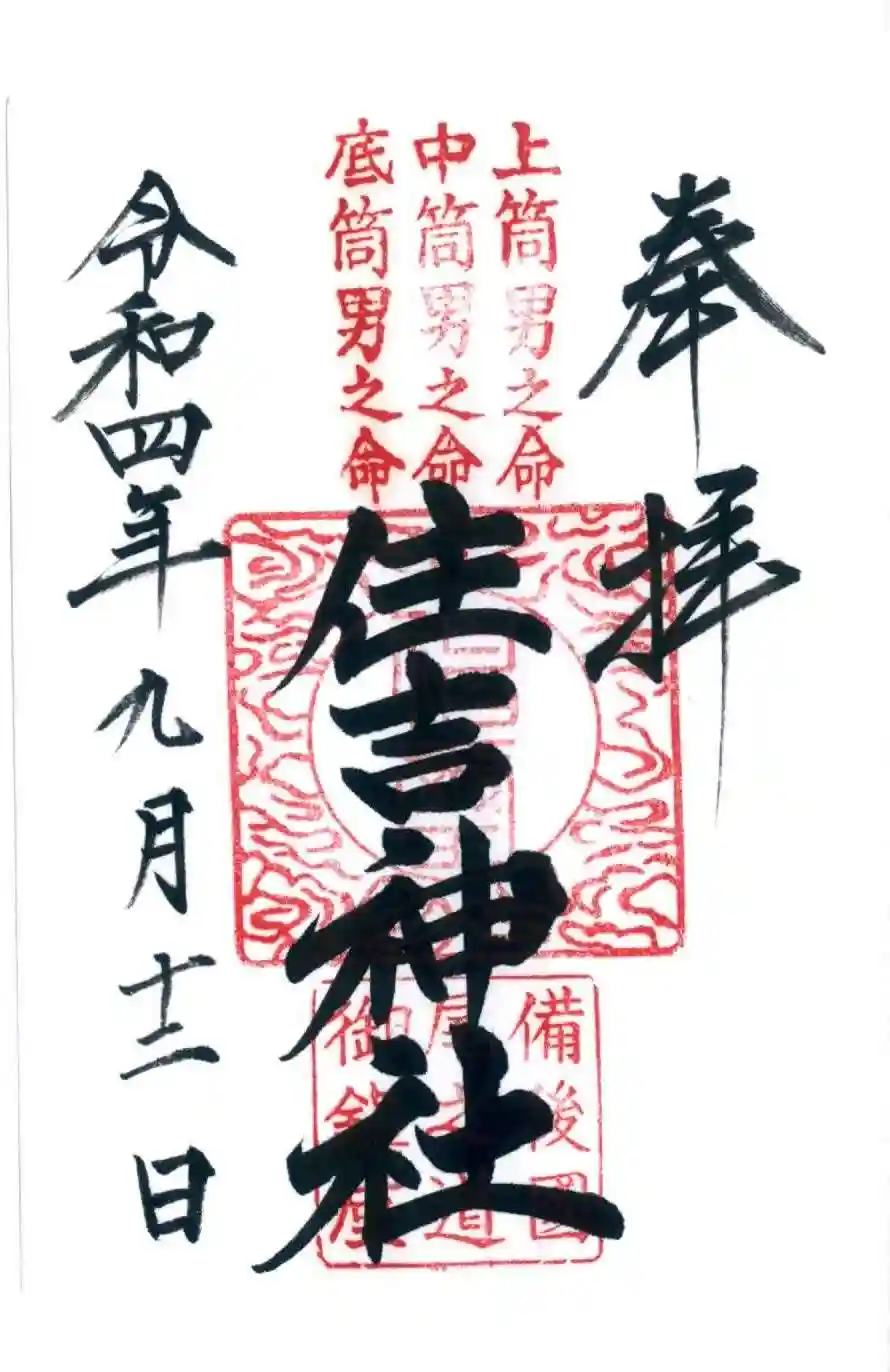 奉拝
上筒男之命
中筒男之命
底筒男之命
住吉神社
備後國
尾之道
御鎮座
令和四年九月十二日